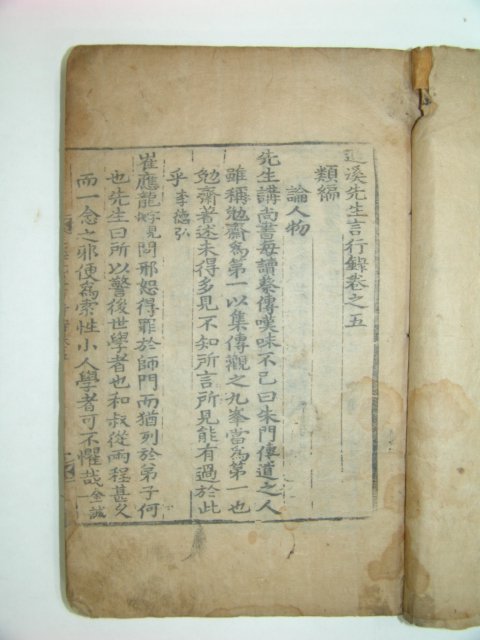 退溪先生言行錄卷之五
類編
論人物
先生講尚書每讀蔡傳嘆味不已曰朱門傳道之人
雖稱勉齋爲第一以集傳觀之九峯當爲第一也
勉齋著述未得多見不知所言所見能有過於此
乎李德弘
崔應龍見問邪恕得罪於師門而猶列於弟子何
也先生曰所以警後世學者也和叔從兩程甚久
而一念之邪便爲索性小人學者可不懼哉金誠一